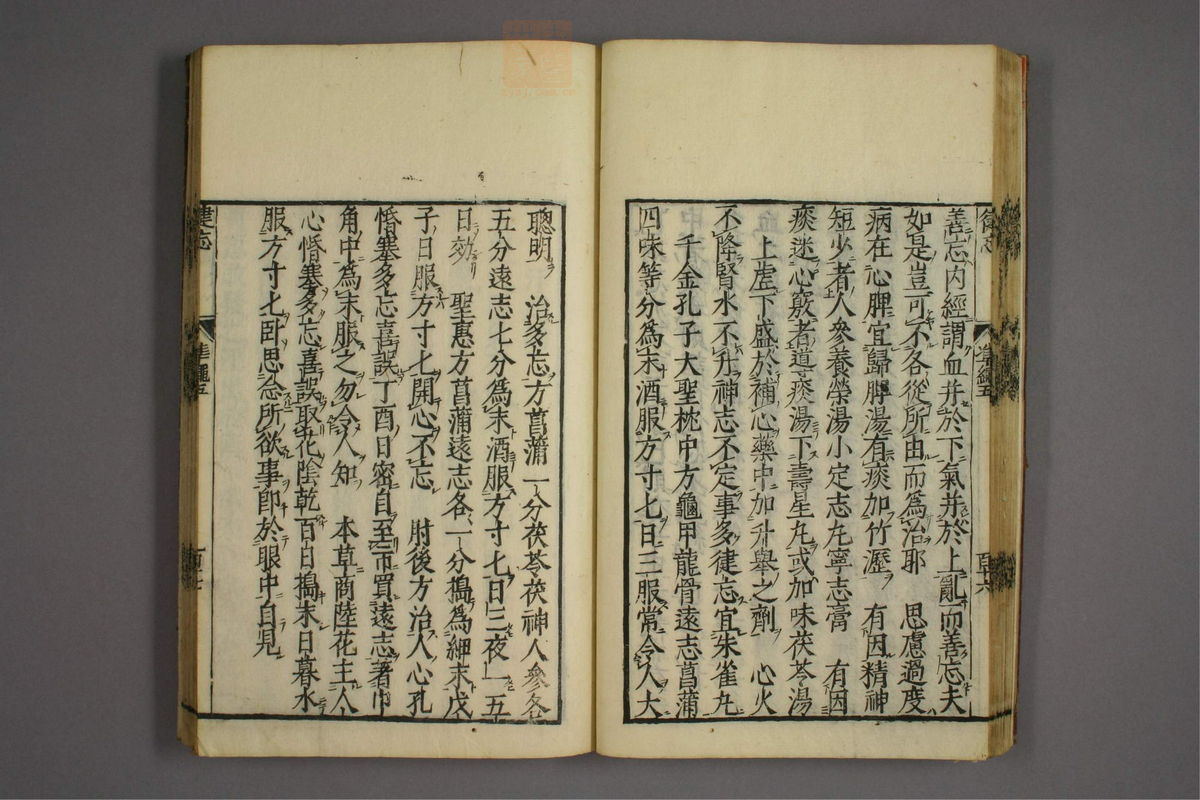 善忘内經謂血并於下氣并於上亂而善忘夫
如是豈可不各從所由而為治耶 思慮過度
病在心脾宜歸脾湯有痰加竹瀝 有因精神
短少者人參養榮湯小定志丸寧志膏 有因
痰迷心竅者導痰湯下壽星丸或加味茯苓湯
上虚下盛於補心藥中加升舉之劑 心火
不降腎水不升神志不定事多健忘宜朱雀丸
千金孔子大聖枕中方龜甲龍骨遠志菖蒲
四味等分為末酒服方寸匕日三服常令人大
聰明 治多忘方菖蒲一分茯苓茯神人參各
五分遠志七分為末酒服方寸匕日三夜一五
日効 聖惠方菖蒲遠志各一分搗為細末戊
子日服方寸匕開心不忘 肘後方治人心孔
惛塞多忘喜誤丁酉日密自至市買遠志著巾
角中為末服之勿令人知 本草商陸花主人
心惛塞多忘喜誤取花陰乾百日搗末日暮水
服方寸匕卧思念所欲事即於眼中自見
健忘
準繩五